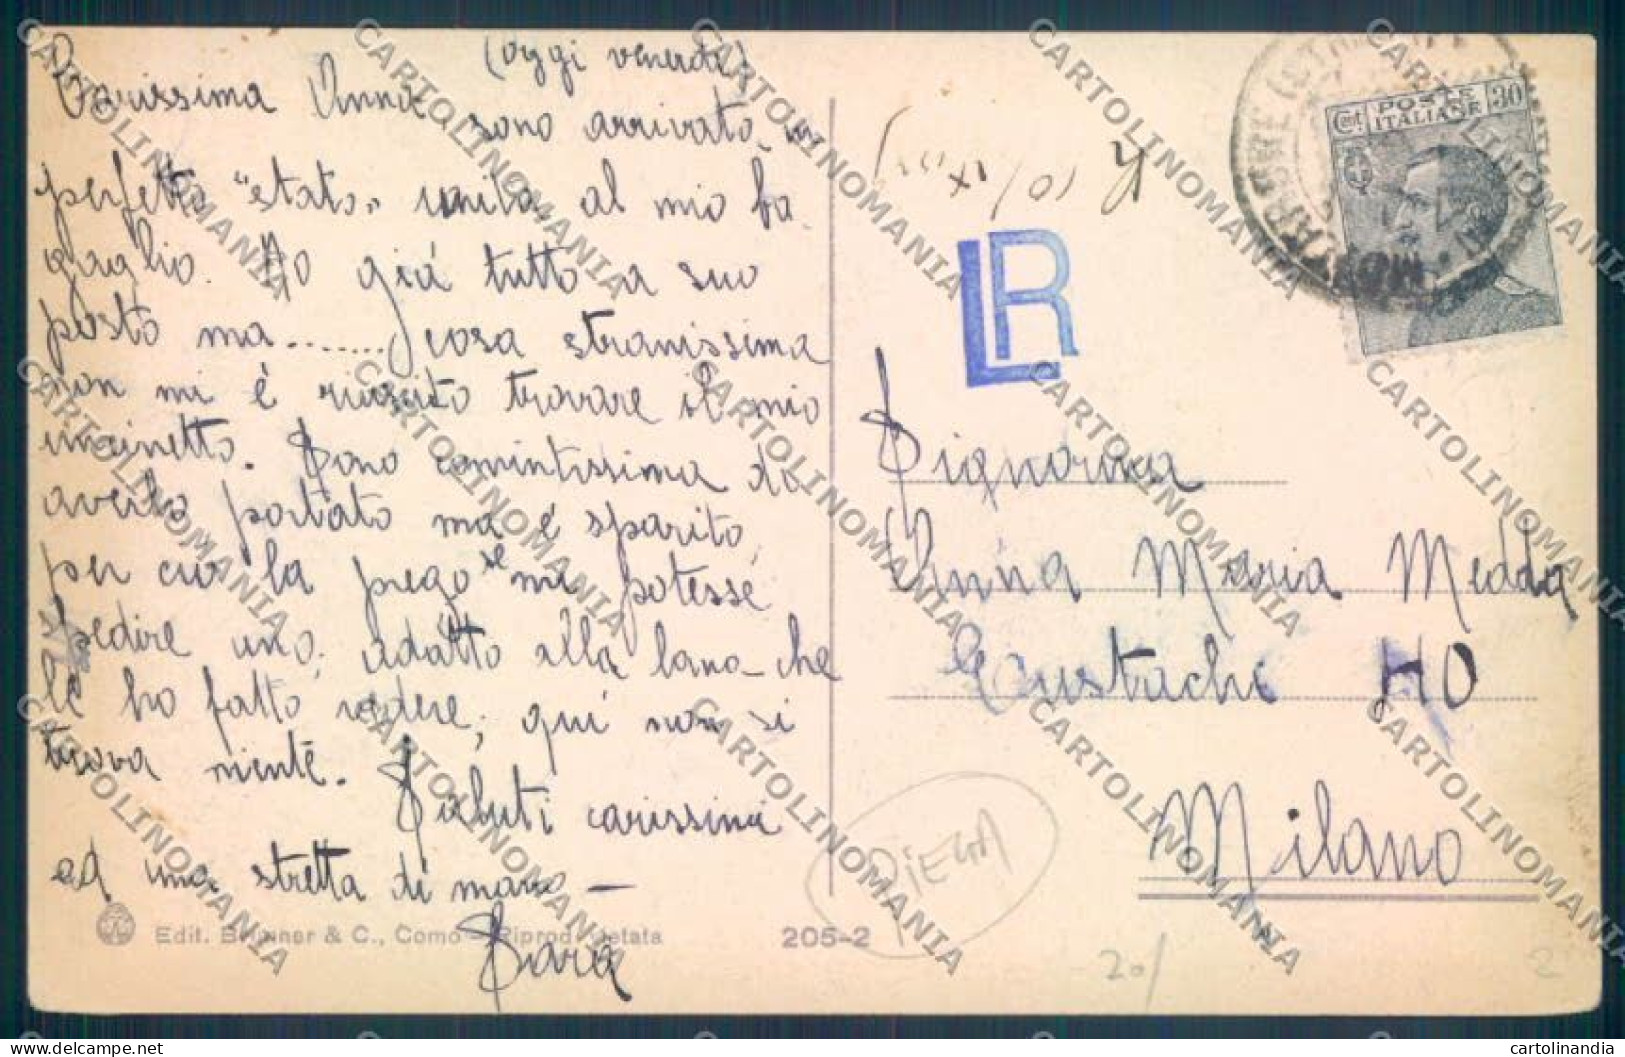 (oggi venerdì)
Carissima Anna
sono arrivata in
perfetto "stato" unita al mio ba-
gaglio. Ho già tutto a suo
posto ma........ cosa stranissima
non mi è riuscito trovare il mio
uncinetto. Sono convintissima di
averlo portato ma è sparito,
per ciò la prego se mi potesse
spedire uno, adatto alla lana che
le ho fatto vedere, qui non si
trova niente. Saluti carissimi
ed una stretta di mano —
Sara
Edit. Brunner & C., Como - Riprod. vietata
205-2
LR
Cent. POSTE ITALIANE 30
Signorina
Anna Maria Medda
Eustachi 40
Milano
PIEGA
20/
2
CARTOLINOMANIA
www.delcampe.net
cartolinandia